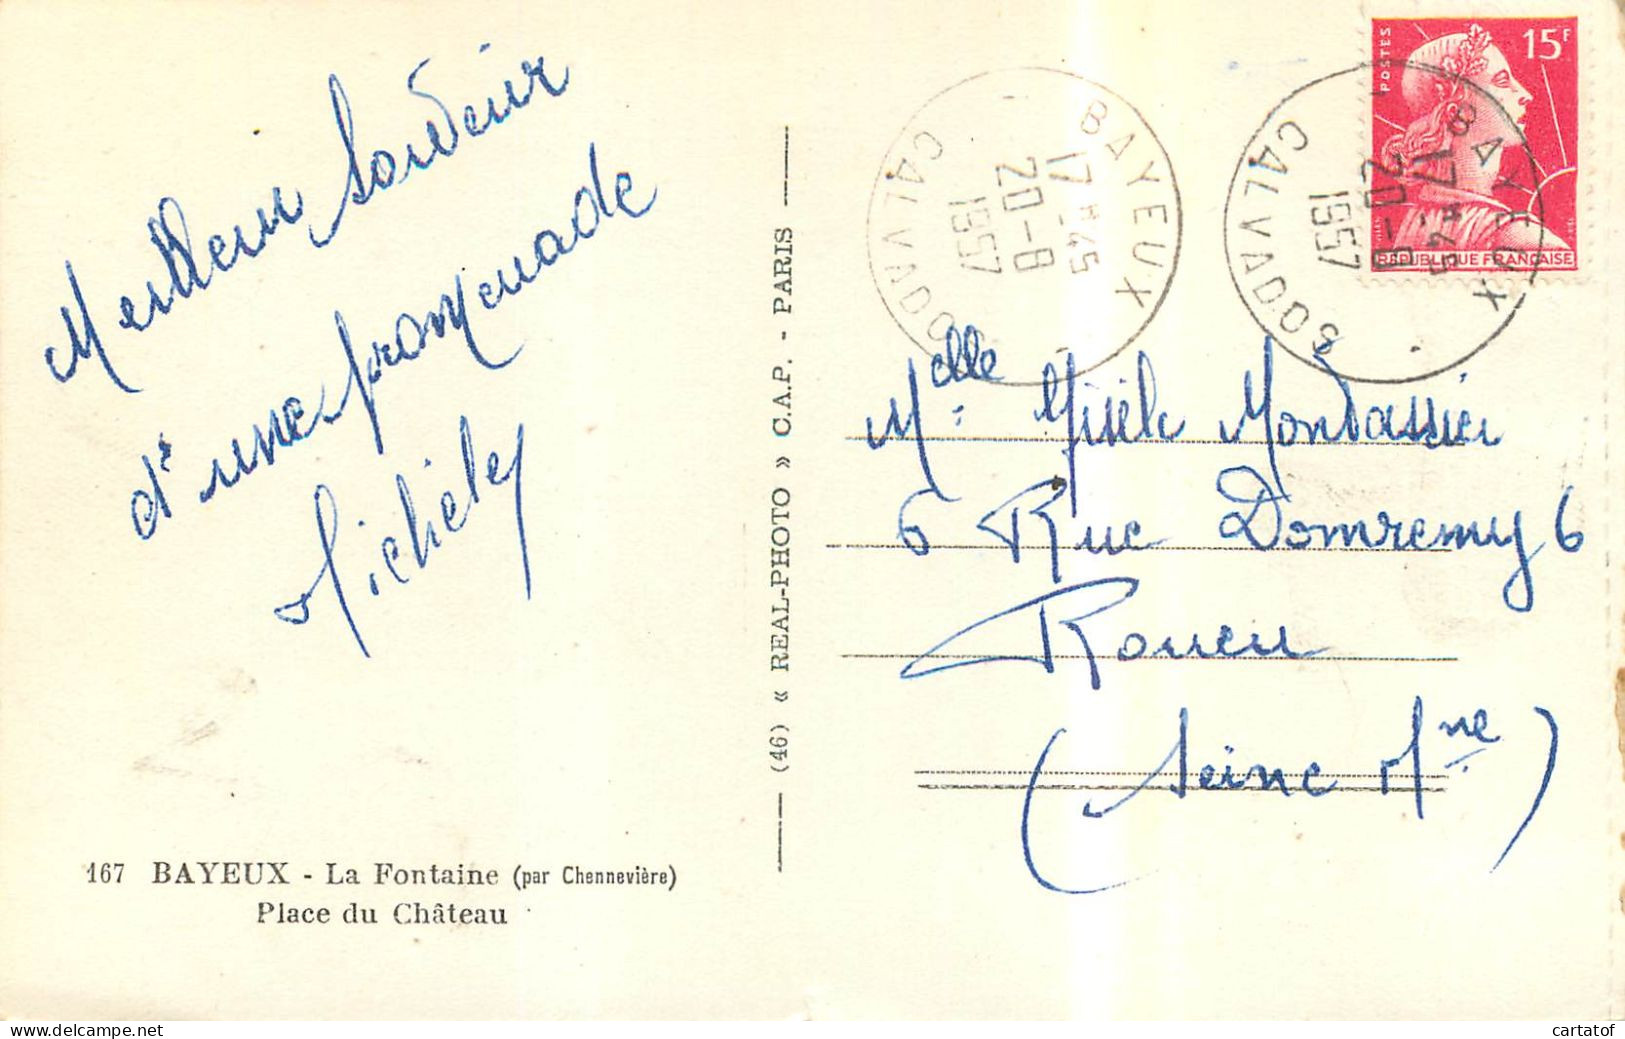 Meilleur Souvenir
d'une promenade
Michèle
167 BAYEUX - La Fontaine (par Chennevière)
Place du Château
(46) « REAL-PHOTO » C.A.P. - PARIS
BAYEUX
17 H 45
20-8
1957
CALVADOS
BAYEUX
17 H 45
20-8
1957
CALVADOS
POSTES
15F
REPUBLIQUE FRANÇAISE
Melle Gisèle Mondassier
6 Rue Domremy 6
Rouen
(Seine Mme)
cartatof